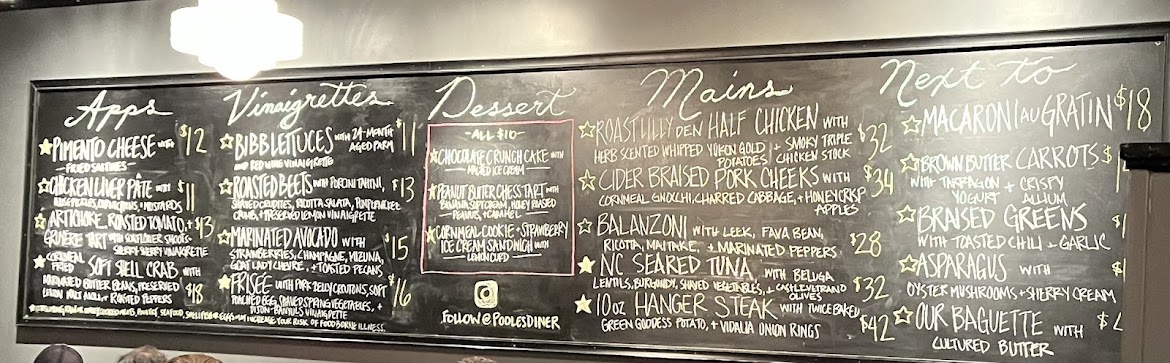 Apps
PIMENTO CHEESE WITH $12
FRIED SALTINES
CHICKEN LIVER PÂTÉ WITH $11
MUSTARDS
ARTICHOKE, ROASTED TOMATO, + $13
GRUYERE TART WITH SUNFLOWER SHOOTS +
SHERRY VINAIGRETTE
CORNMEAL
FRIED SOFT SHELL CRAB WITH
MARINATED BUTTER BEANS, PRESERVED
LEMON AIOLI, + ROASTED PEPPERS $18
INCREASE YOUR RISK OF FOODBORNE ILLNESS.
Vinaigrettes
BIBB LETTUCES WITH 24-MONTH $11
AGED PARM
AND RED WINE VINAIGRETTE
ROASTED BEETS WITH TAHINI, $13
SHAVED CRUDITES, RICOTTA SALATA,
+ PRESERVED LEMON VINAIGRETTE
MARINATED AVOCADO WITH $15
STRAWBERRIES, CHAMPAGNE, MIZUNA,
GOAT LADY CHEVRE, + TOASTED PECANS
FRISEE WITH PORK BELLY CROUTONS, SOFT $16
POACHED EGG, SHAVED SPRING VEGETABLES, +
DIJON-BANYULS VINAIGRETTE
Dessert
-ALL $10-
CHOCOLATE CRUNCH CAKE WITH
MALTED ICE CREAM
PEANUT BUTTER CHESS TART WITH
BANANA SEPT CREAM, HONEY ROASTED
PEANUTS, + CARAMEL
CORNMEAL COOKIE + STRAWBERRY
ICE CREAM SANDWICH WITH
LEMON CURD
FOLLOW @POOLESDINER
Mains
ROAST LILLY DEN HALF CHICKEN WITH $32
HERB SCENTED WHIPPED YUKON GOLD + SMOKY TRIPLE
POTATOES CHICKEN STOCK
CIDER BRAISED PORK CHEEKS WITH $34
CORNMEAL GNOCCHI, CHARRED CABBAGE, + HONEYCRISP
APPLES
BALANZONI WITH LEEK, FAVA BEAN, $28
RICOTTA, MAITAKE, + MARINATED PEPPERS
NC SEARED TUNA WITH BELUGA $32
LENTILS, BURGUNDY, SHAVED VEGETABLES, + CASTELVETRANO
OLIVES
10oz HANGER STEAK WITH TWICE BAKED $42
GREEN GODDESS POTATO, + VIDALIA ONION RINGS
Next to
MACARONI AU GRATIN $18
BROWN BUTTER CARROTS $
WITH TARRAGON + CRISPY
YOGURT ALLIUM
BRAISED GREENS $
WITH TOASTED CHILI + GARLIC
ASPARAGUS WITH $
OYSTER MUSHROOMS + SHERRY CREAM
OUR BAGUETTE WITH $
CULTURED BUTTER